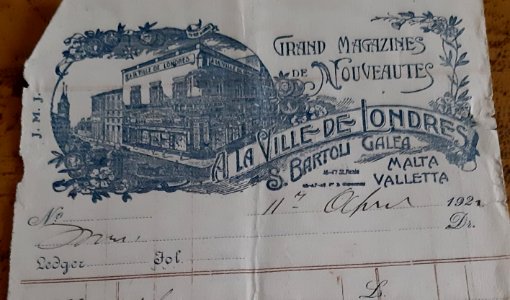 GRAND MAGAZINES
DE NOUVEAUTES
A LA VILLE DE LONDRES
A LA VILLE DE LONDRES
S. BARTOLI GALEA
MALTA
VALLETTA
J. M. J.
No
11th April 192
Dr.
Ledger Fol
Ls.